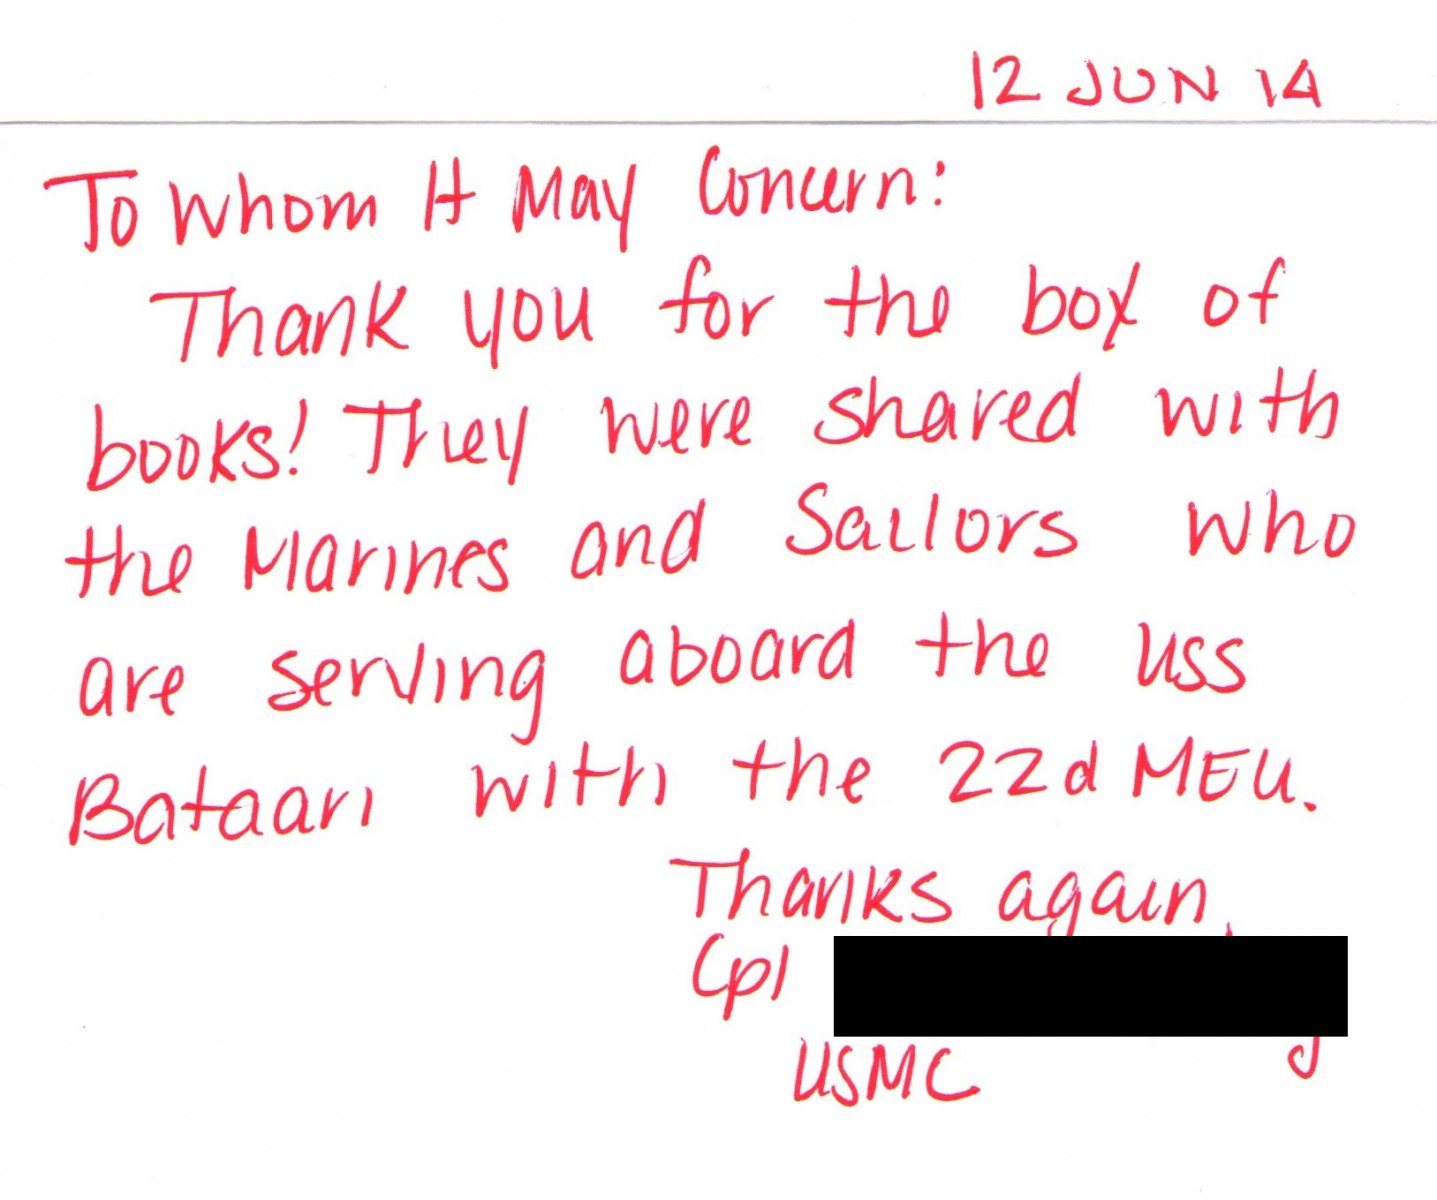 12 JUN 14
To Whom It May Concern:
Thank you for the box of
books! They were shared with
the Marines and Sailors who
are serving aboard the USS
Bataan with the 22d MEU.
Thanks again,
Cpl
USMC